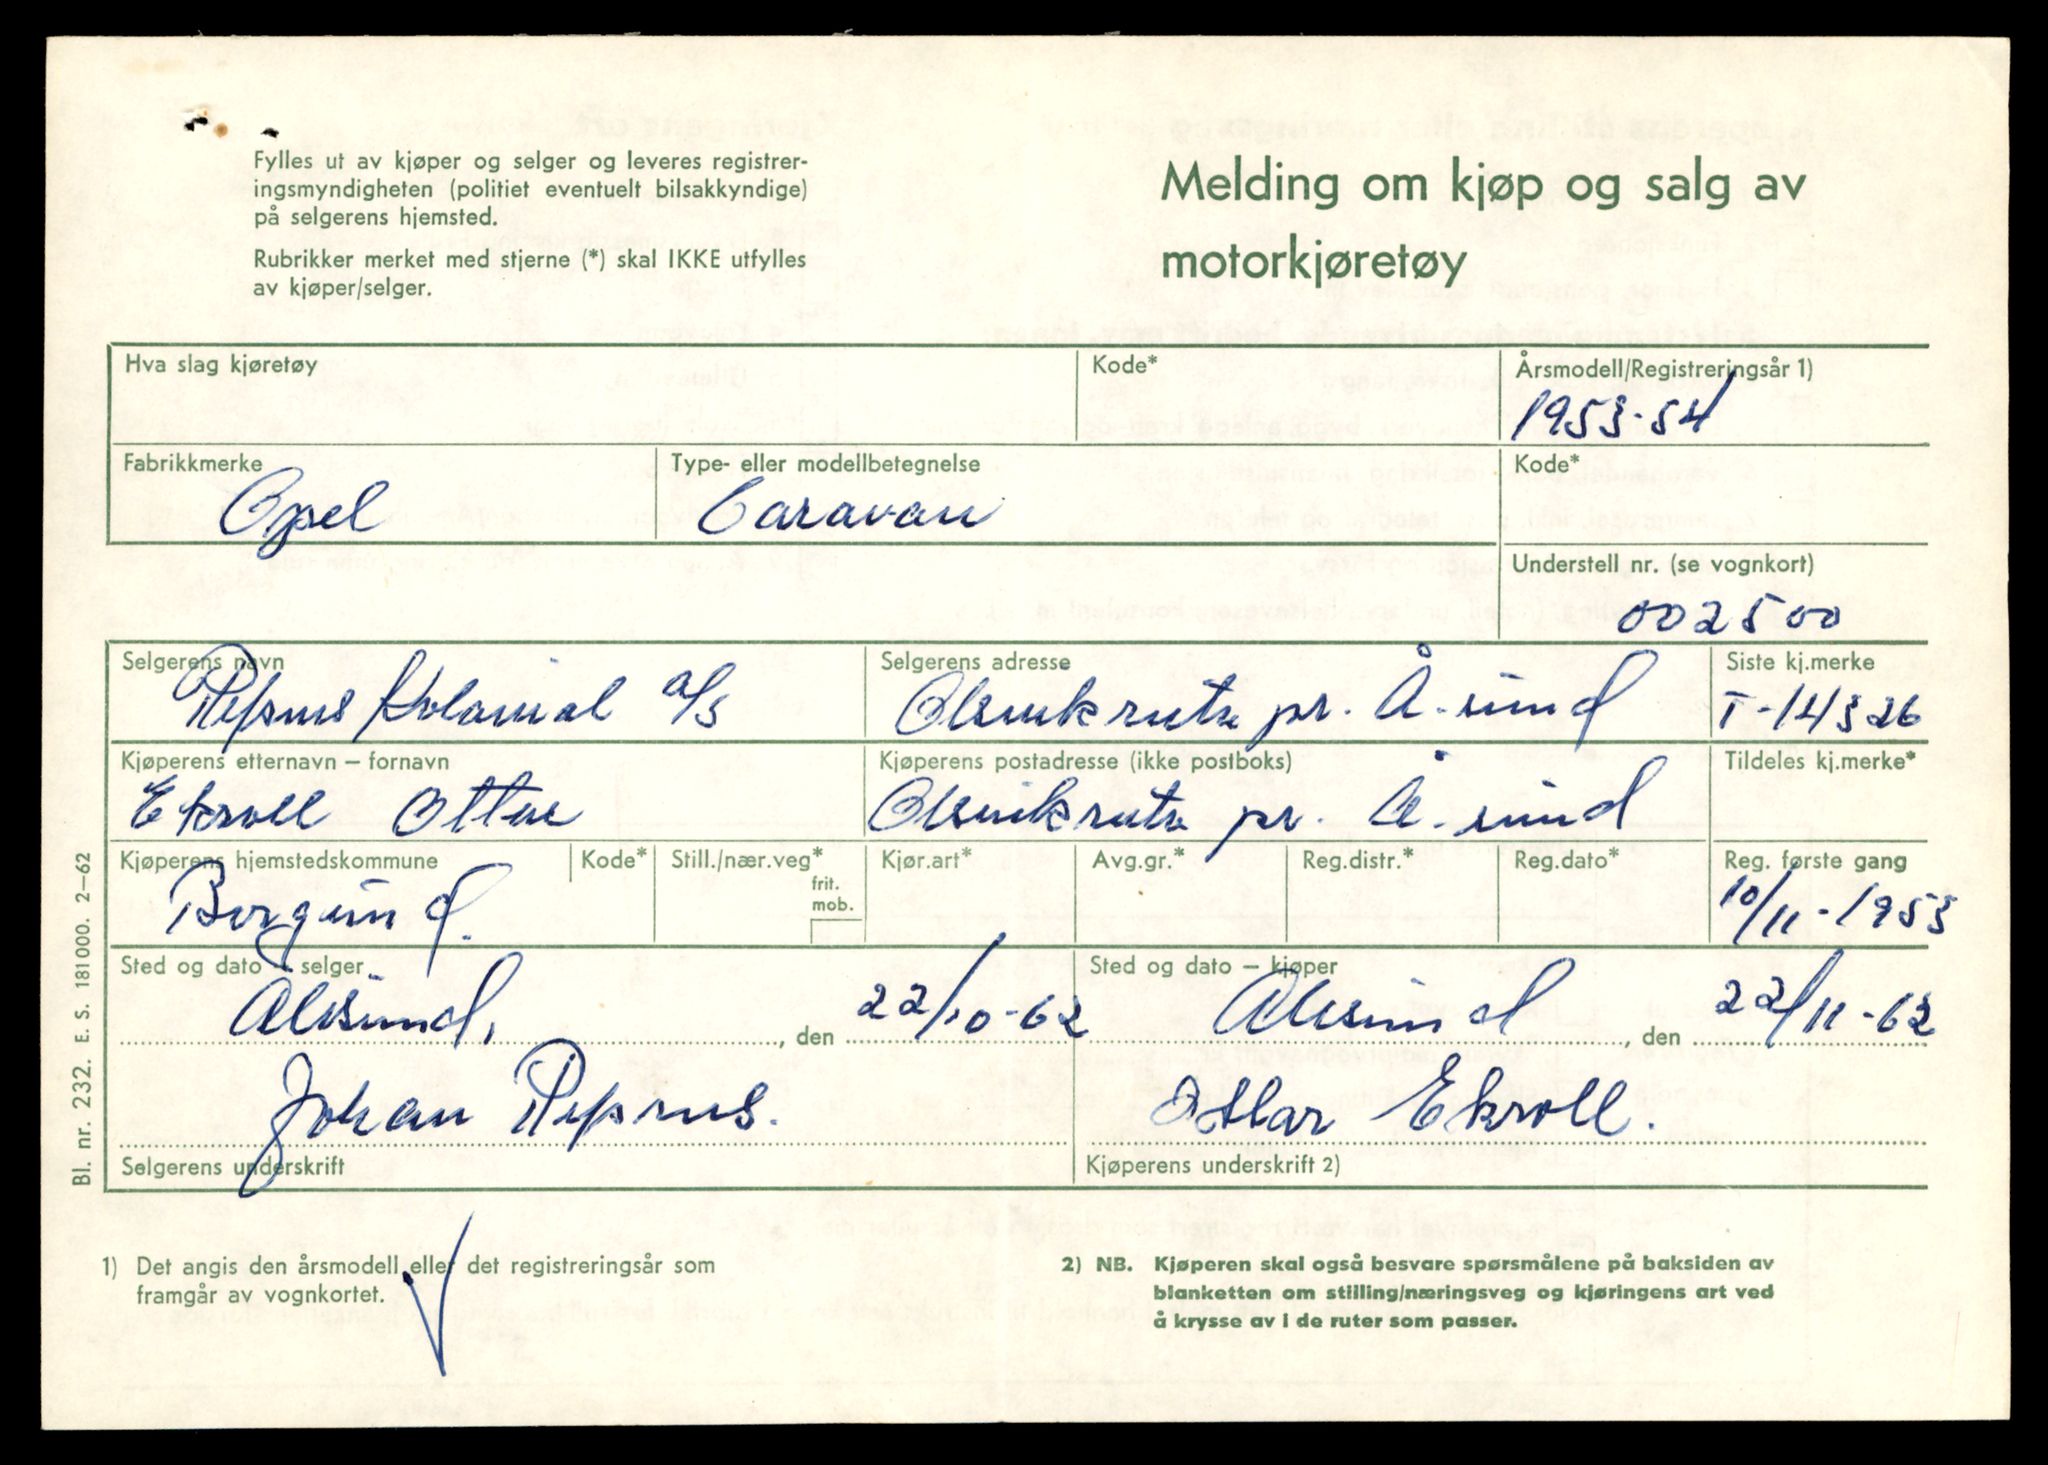 Fylles ut av kjøper og selger og leveres registrer-
ingsmyndigheten (politiet eventuelt bilsakkyndige)
på selgerens hjemsted.
Rubrikker merket med stjerne (*) skal IKKE utfylles
av kjøper/selger.
Melding om kjøp og salg av
motorkjøretøy
Hva slag kjøretøy
Kode*
Årsmodell/Registreringsår 1)
1953-54
Fabrikkmerke
Opel
Type- eller modellbetegnelse
Caravan
Kode*
Understell nr. (se vognkort)
002500
Selgerens navn
Kolonial a/s
Selgerens adresse
pr. Å.sund
Siste kj.merke
T-14326
Kjøperens etternavn – fornavn
Ekroll Ottar
Kjøperens postadresse (ikke postboks)
pr. Å.sund
Tildeles kj.merke*
Kjøperens hjemstedskommune
Borgund.
Kode*
Still./nær.veg*
frit.
mob.
Kjør.art*
Avg.gr.*
Reg.distr.*
Reg.dato*
Reg. første gang
10/11-1953
Sted og dato – selger
Ålesund, , den 22/10-62
Sted og dato – kjøper
Ålesund , den 22/11-62
Johan
Selgerens underskrift
Ottar Ekroll.
Kjøperens underskrift 2)
Bl. nr. 232. E. S. 181000. 2–62
1) Det angis den årsmodell eller det registreringsår som
framgår av vognkortet.
2) NB. Kjøperen skal også besvare spørsmålene på baksiden av
blanketten om stilling/næringsveg og kjøringens art ved
å krysse av i de ruter som passer.